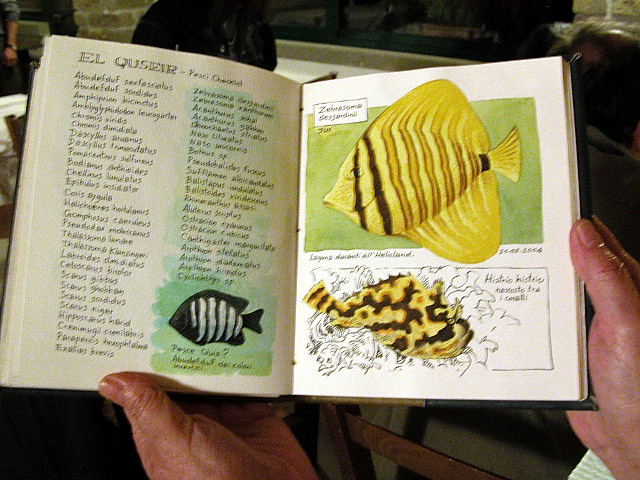 EL QUSEIR - Pesci Checklist
Abudefduf sexfasciatus
Abudefduf sordidus
Amphiprion bicinctus
Amblyglyphidodon leucogaster
Chromis viridis
Chromis dimidiata
Dascyllus aruanus
Dascyllus trimaculatus
Pomacentrus sulfureus
Bodianus anthioides
Cheilinus lunulatus
Epibulus insidiator
Coris aygula
Halichoeres hortulanus
Gomphosus caeruleus
Pseudodax moluccanus
Thalassoma lunare
Thalassoma klunzingeri
Labroides dimidiatus
Cetoscarus bicolor
Scarus gibbus
Scarus ghobban
Scarus sordidus
Scarus niger
Hipposcarus harid
Crenimugil crenilabris
Parapercis hexophtalma
Exallias brevis
Zebrasoma desjardinii
Zebrasoma xanthurum
Acanthurus sohal
Acanthurus gahhm
Ctenochaetus striatus
Naso lituratus
Naso unicornis
Bothus sp.
Pseudobalistes fuscus
Sufflamen albicaudatus
Balistapus undulatus
Balistoides viridescens
Rhinecanthus assasi
Aluterus scriptus
Ostracion cyanurus
Ostracion cubicus
Canthigaster margaritata
Arothron stellatus
Arothron diadematus
Arothron hispidus
Cyclichthys sp.
Pesce Quiz?
Abudefduf dai colori
Zebrasoma
desjardinii
JUV.
Laguna davanti all'Helioland.
21.05.2006
Histrio histrio
nascosto tra
i coralli